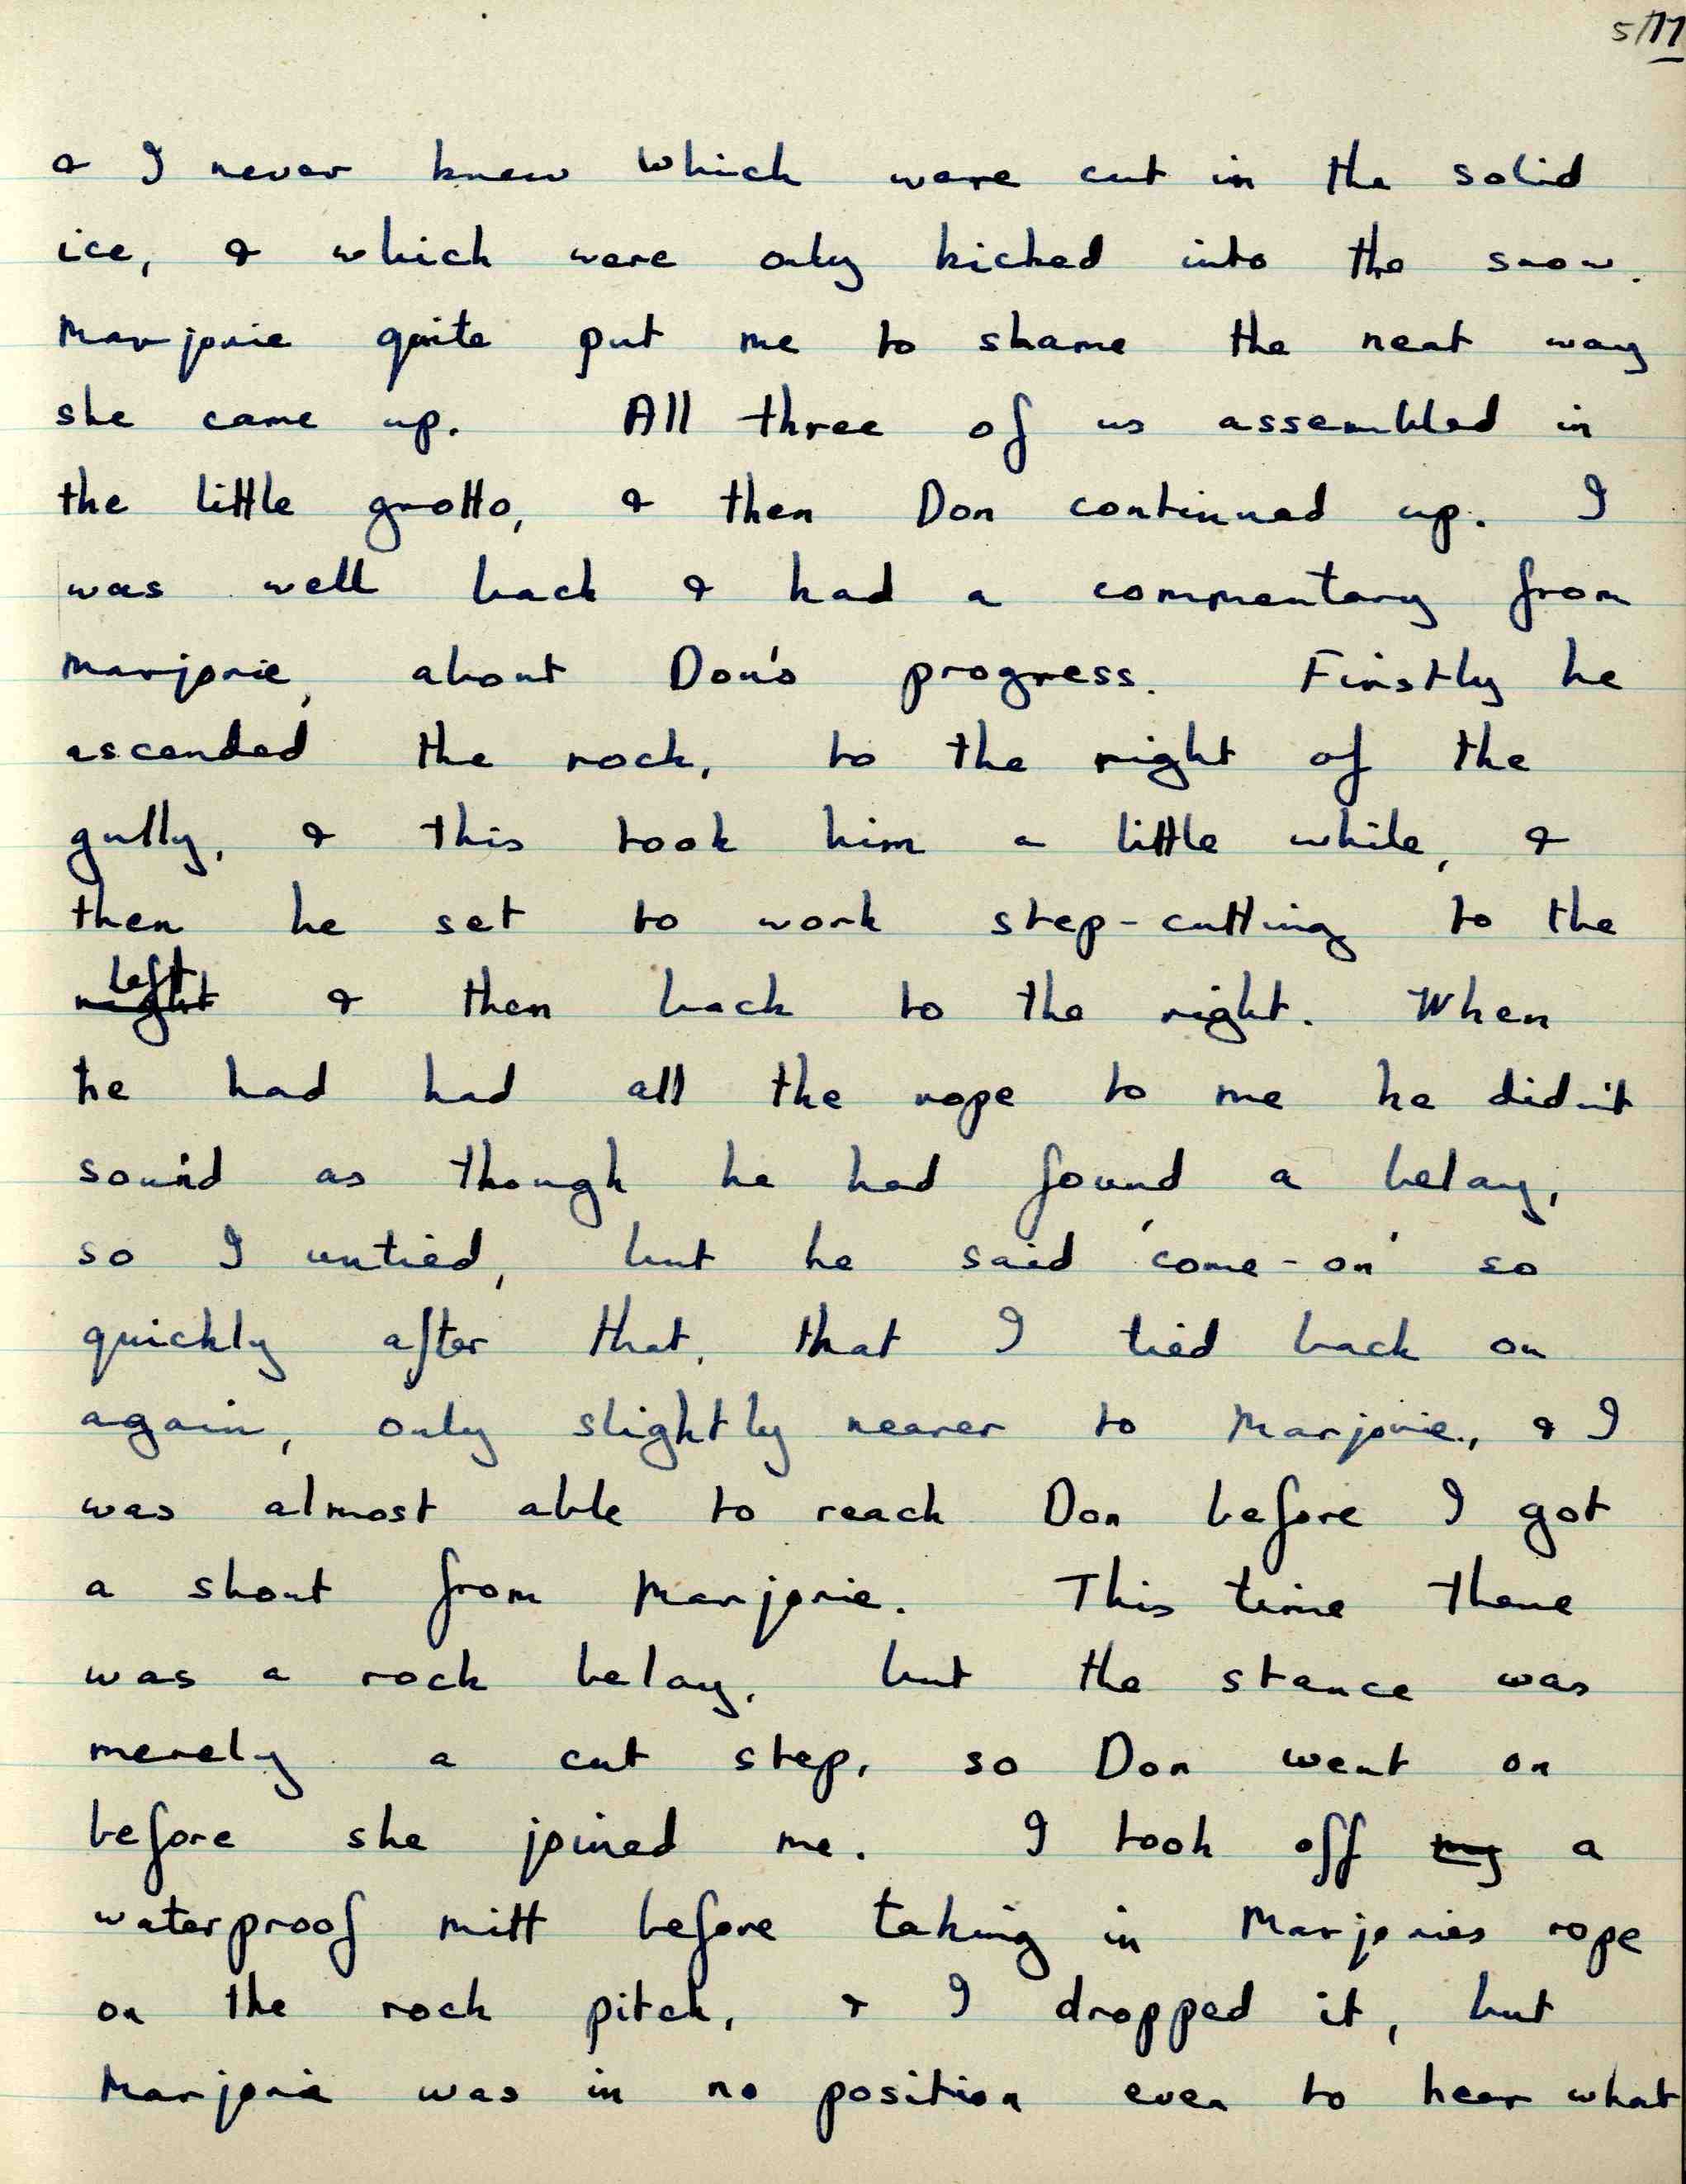 5/77
& I never knew which were cut in the solid
ice, & which were only kicked into the snow.
Marjorie quite put me to shame the neat way
she came up. All three of us assembled in
the little grotto, & then Don continued up. I
was well back & had a commentary from
Marjorie, about Don's progress. Firstly he
ascended the rock, to the right of the
gully, & this took him a little while, &
then he set to work step-cutting to the
left & then back to the right. When
he had had all the rope to me he didn't
sound as though he had found a belay,
so I untied, but he said 'come-on' so
quickly after that, that I tied back on
again, only slightly nearer to Marjorie, & I
was almost able to reach Don before I got
a shout from Marjorie. This time there
was a rock belay, but the stance was
merely a cut step, so Don went on
before she joined me. I took off my a
waterproof mitt before taking in Marjories rope
on the rock pitch, & I dropped it, but
Marjorie was in no position even to hear what